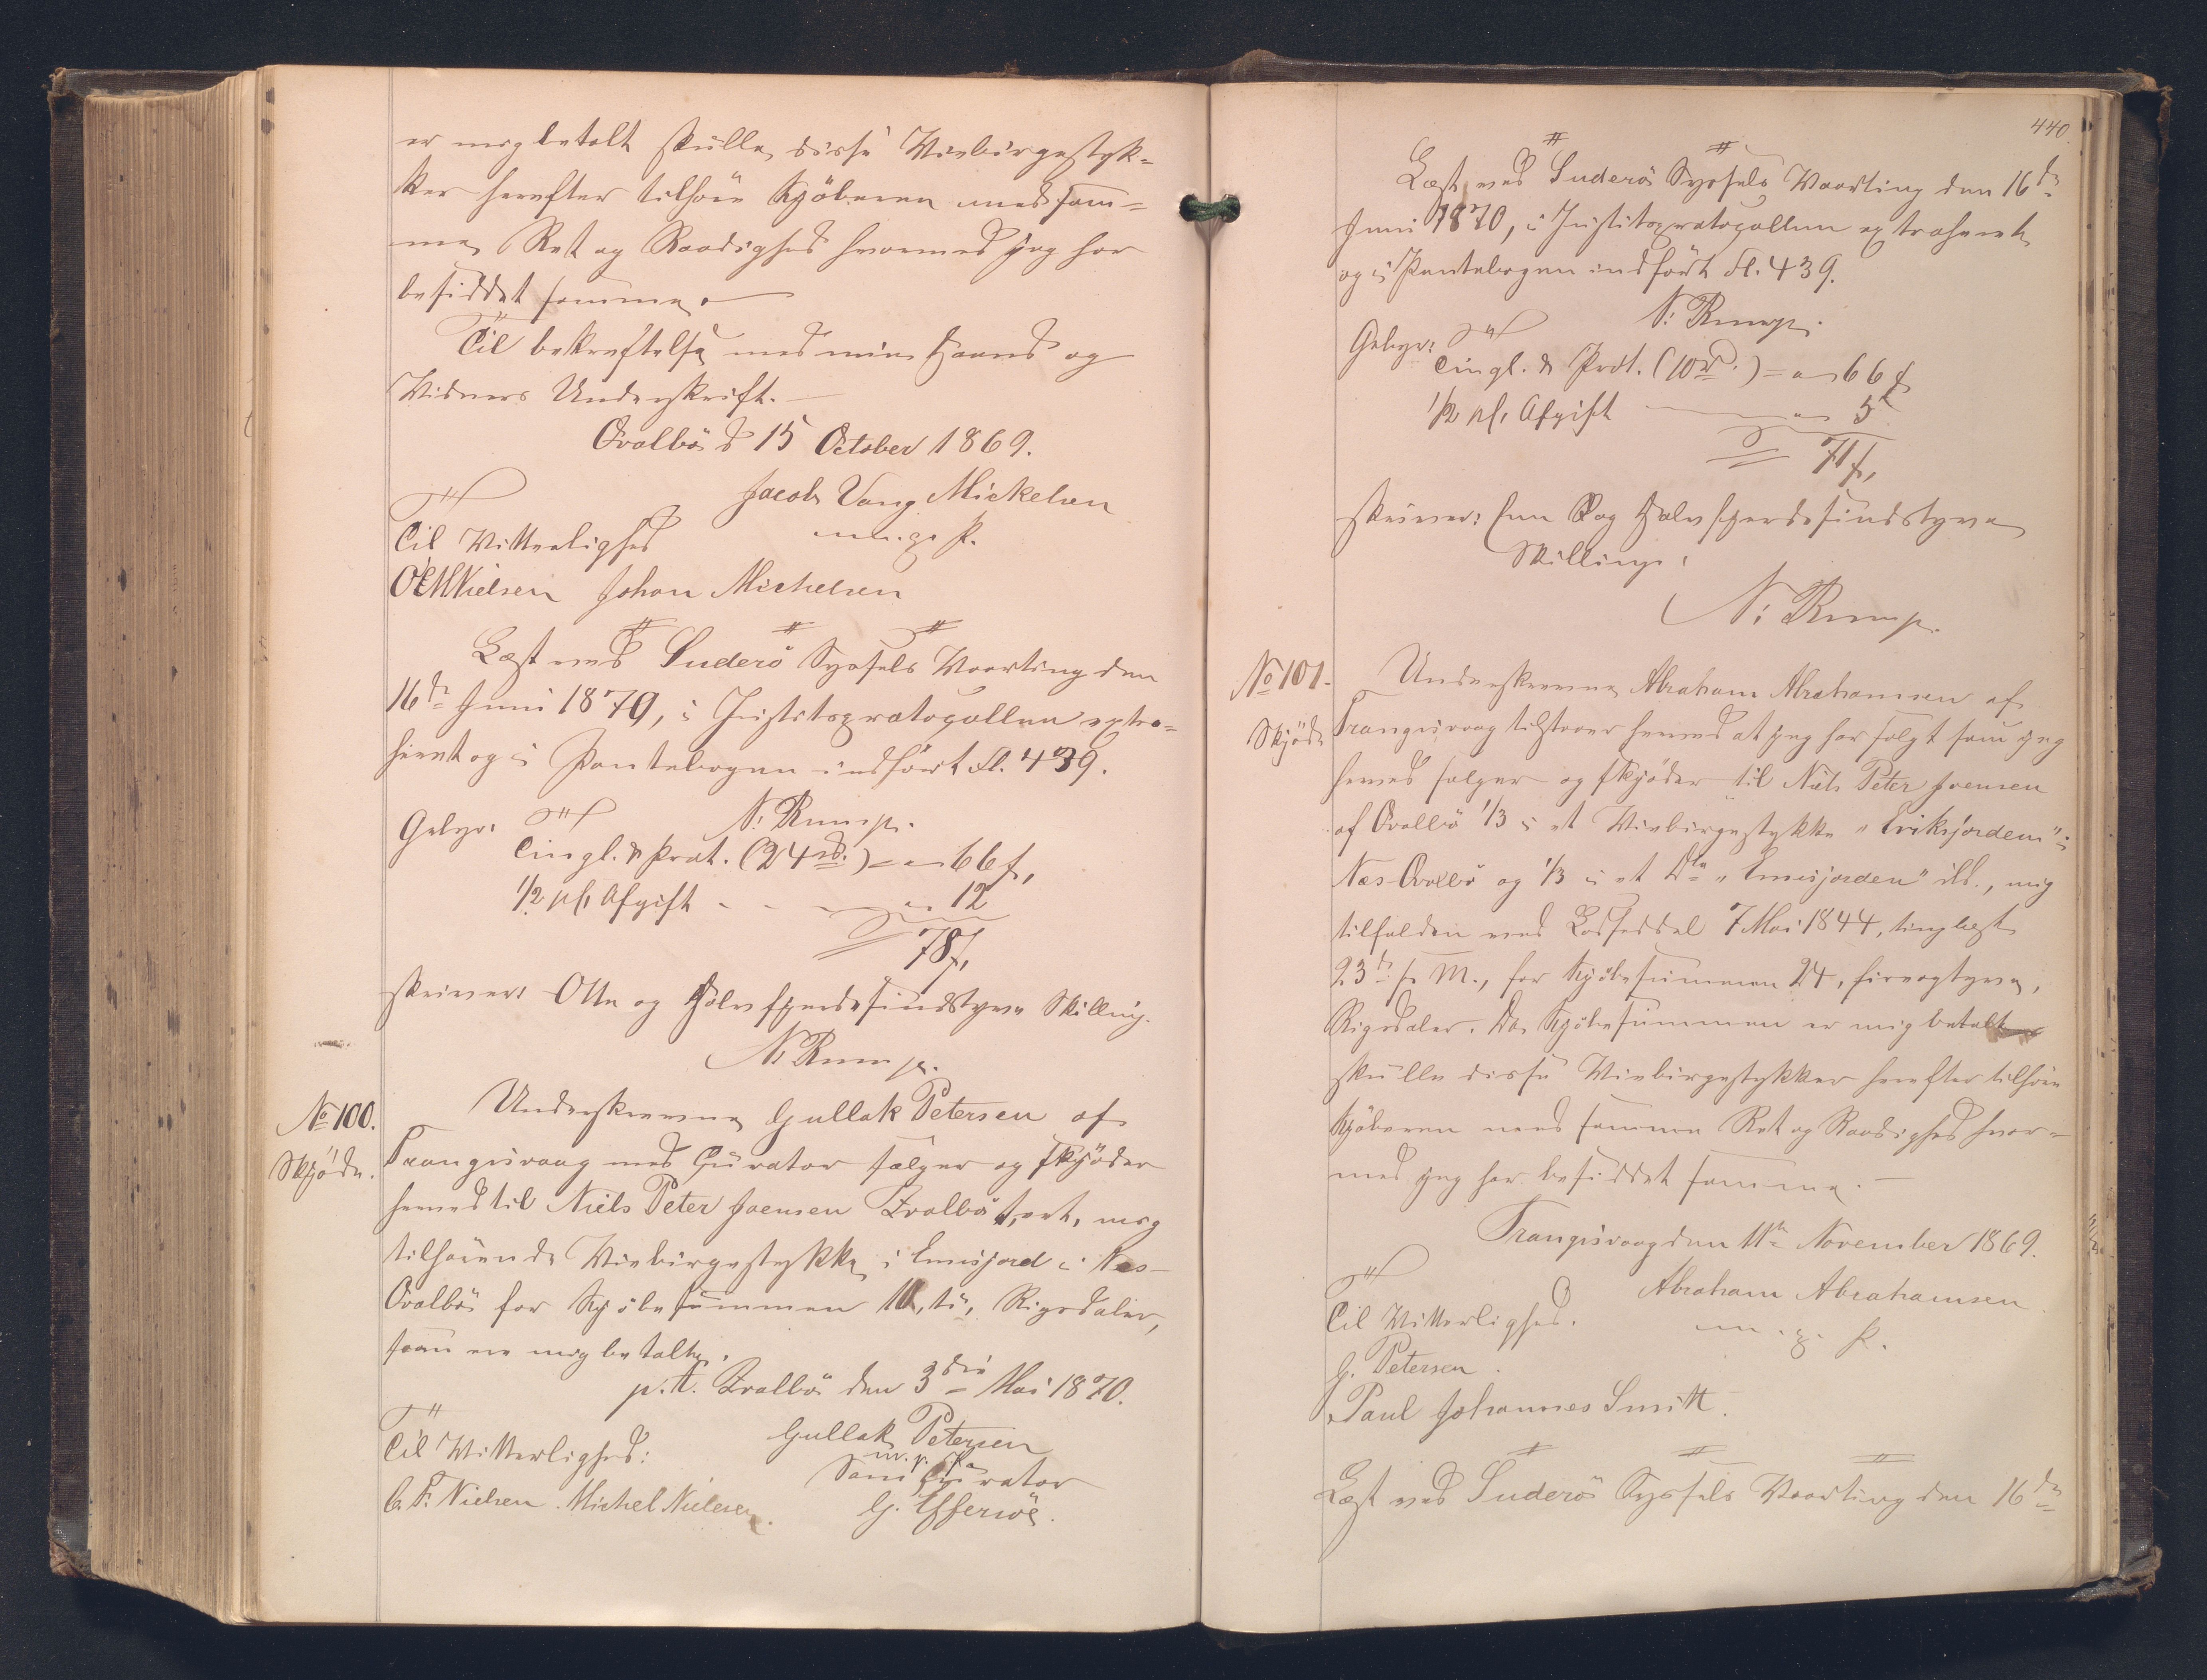 er mig betalt skulle disse Vinbirgestyk=
ker herefter tilhøre Kjöberen med sam=
me Ret og Raadighed hvormed jeg har
besiddet samme.
Til bekræftelse med min Haand og
Vidners Underskrift.
Qvalbö d 15 October 1869.
Jacob Vang Mickelsen
m. p. p.
Til Vitterlighed
Nielsen Johan Michelsen
Læst ved Suderö Syssels Vaarting den
16de Juni 1870, i Justitsprotocollen extra=
heret og i Pantebogen indført Fl. 439.
N. Rump.
Gebyr:
Tingl. & Prot. (24 rd.) = 66 ß,
1/2 pCt. Afgift - - - 12
78 ß,
skriver: Otte og Halvfjerdsindstyve Skilling.
N. Rump.
No 100.
Skjöde.
Underskrevne Gullak Petersen af
Trangisvaag med Curator sælger og skjöder
herved til Niels Peter Joensen Qvalbö et, mig
tilhørende Vinbirgestykke i Ennisjord i Næs-
Qvalbö for Kjöbesummen 10, ti, Rigsdaler,
som er mig betalte.
p. t. Qvalbö den 3die Mai 1870.
Gullak Petersen
m. p. P.
Til Vitterlighed:
Som Curator
C. F. Nielsen. Michel Nielsen.
G. Effersöe.
440
Læst ved Suderö Syssels Vaarting den 16de
Juni 1870, i Justitsprotocollen extraheret
og i Pantebogen indført Fl. 439.
N. Rump.
Gebyr:
Tingl. & Prot. (10 rd.) = 66 ß
1/2 pCt. Afgift 5
71 ß,
skriver: Een og Halvfjerdsindstyve
Skilling.
N. Rump.
No 101.
Skjöde
Underskrevne Abraham Abrahamsen af
Trangisvaag tilstaaer herved at jeg har solgt som jeg
herved sælger og skjöder til Niels Peter Joensen
af Qvalbö 1/3 i et Vinbirgestykke "Eriksjorden" i
Næs-Qvalbö og 1/3 i et Do "Ennisjorden" ibd., mig
tilfalden ved Lodseddel 7 Mai 1844, tinglæst
23de s. M., for Kjöbesummen 24, fireogtyve,
Rigsdaler. Da Kjöbesummen er mig betalt
skulle disse Vinbirgestykker herefter tilhøre
Kjöberen med samme Ret og Raadighed hvor=
med jeg har besiddet samme.
Trangisvaag den 11te November 1869.
Abraham Abrahamsen
m. p. p.
Til Vitterlighed.
G. Petersen.
Paul Johannes Smith.
Læst ved Suderö Syssels Vaarting den 16de